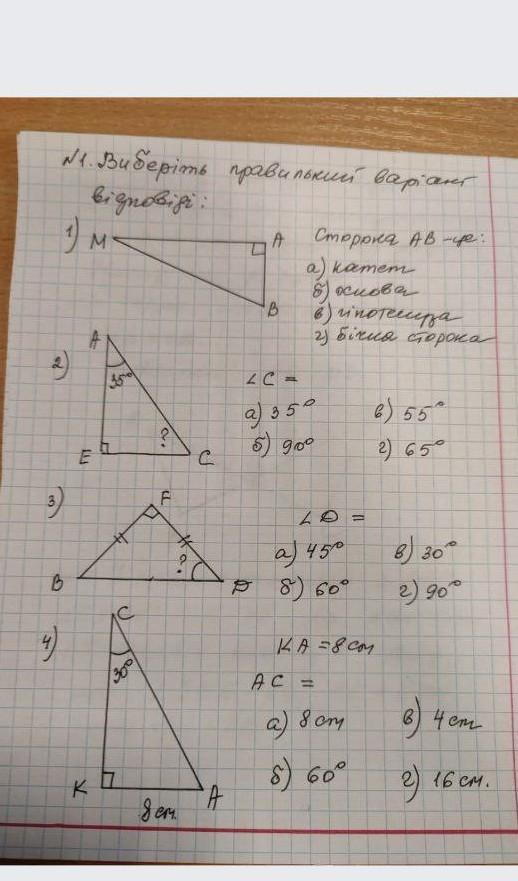 №1. Виберіть правильний варіант
відповіді:
1) M A B
Сторона AB - це:
а) катет
б) основа
в) гіпотенуза
г) бічна сторона
2) A 35° E ? C
∠C =
а) 35° в) 55°
б) 90° г) 65°
3) F B ? D
∠D =
а) 45° в) 30°
б) 60° г) 90°
4) C 30° K A 8 см.
KA = 8 см
AC =
а) 8 см в) 4 см
б) 60° г) 16 см.